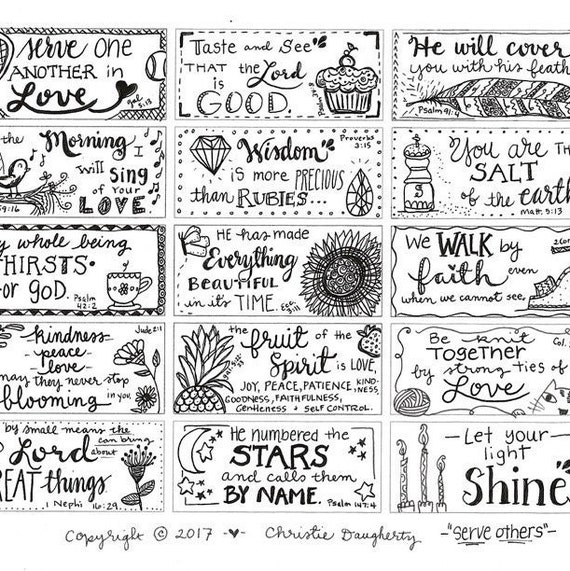 Serve one
ANOTHER in
Love
gal.
5:13
Taste and See
THAT the Lord
is
GOOD.
Psalm
He will cover
you with his feath
Psalm 91:4
the Morning I
will sing
of your
LOVE
59:16
Proverbs
3:15
Wisdom
is more PRECIOUS
than RUBIES...
You are th
SALT
of the earth
Matt. 5:13
S
y whole being
THIRSTS
or GOD.
Psalm
42:2
He has made
Everything
BEAUTIFUL
in its TIME.
Ecc.
3:11
We WALK by
faith even
when we cannot see.
2 Cor
kindness
peace
love
may they never stop
blooming
in you
Jude 2:1
the fruit of the
Spirit is LOVE,
JOY, PEACE, PATIENCE, KIND-
NESS,
GOODNESS, FAITHFULNESS,
GENTLENESS + SELF CONTROL.
Be knit
TOGETHER
by strong ties of
Love
Col.
by small means the
Lord can bring
about
GREAT things.
1 Nephi 16:29
He numbered the
STARS
and calls them
BY NAME.
Psalm 147:4
-Let your-
light
Shine
Copyright © 2017 -♥- Christie Daugherty -"serve others"-